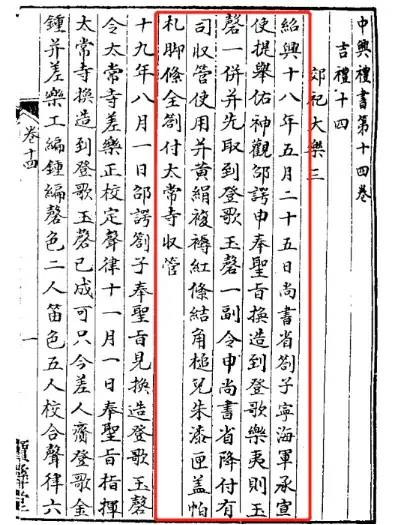 中興禮書第十四卷
吉禮十四
郊祀大樂三
紹興十八年五月二十五日尚書省劄子寧海軍承宣
使提舉佑神觀邵諤申奉聖旨換造到登歌樂夷則玉
磬一併并先取到登歌玉磬一副令申尚書省降付有
司收管使用并黃絹複褥紅條結角槌兒朱漆匣蓋帕
札脚條全劄付太常寺收管
十九年八月一日邵諤劄子奉聖旨見換造登歌玉磬
令太常寺差樂正校定聲律十一月一日奉聖旨指揮
太常寺換造到登歌玉磬已成可只今差人齎登歌金
鍾并差樂工編鍾編磬色二人笛色五人校合聲律六
卷十四
一